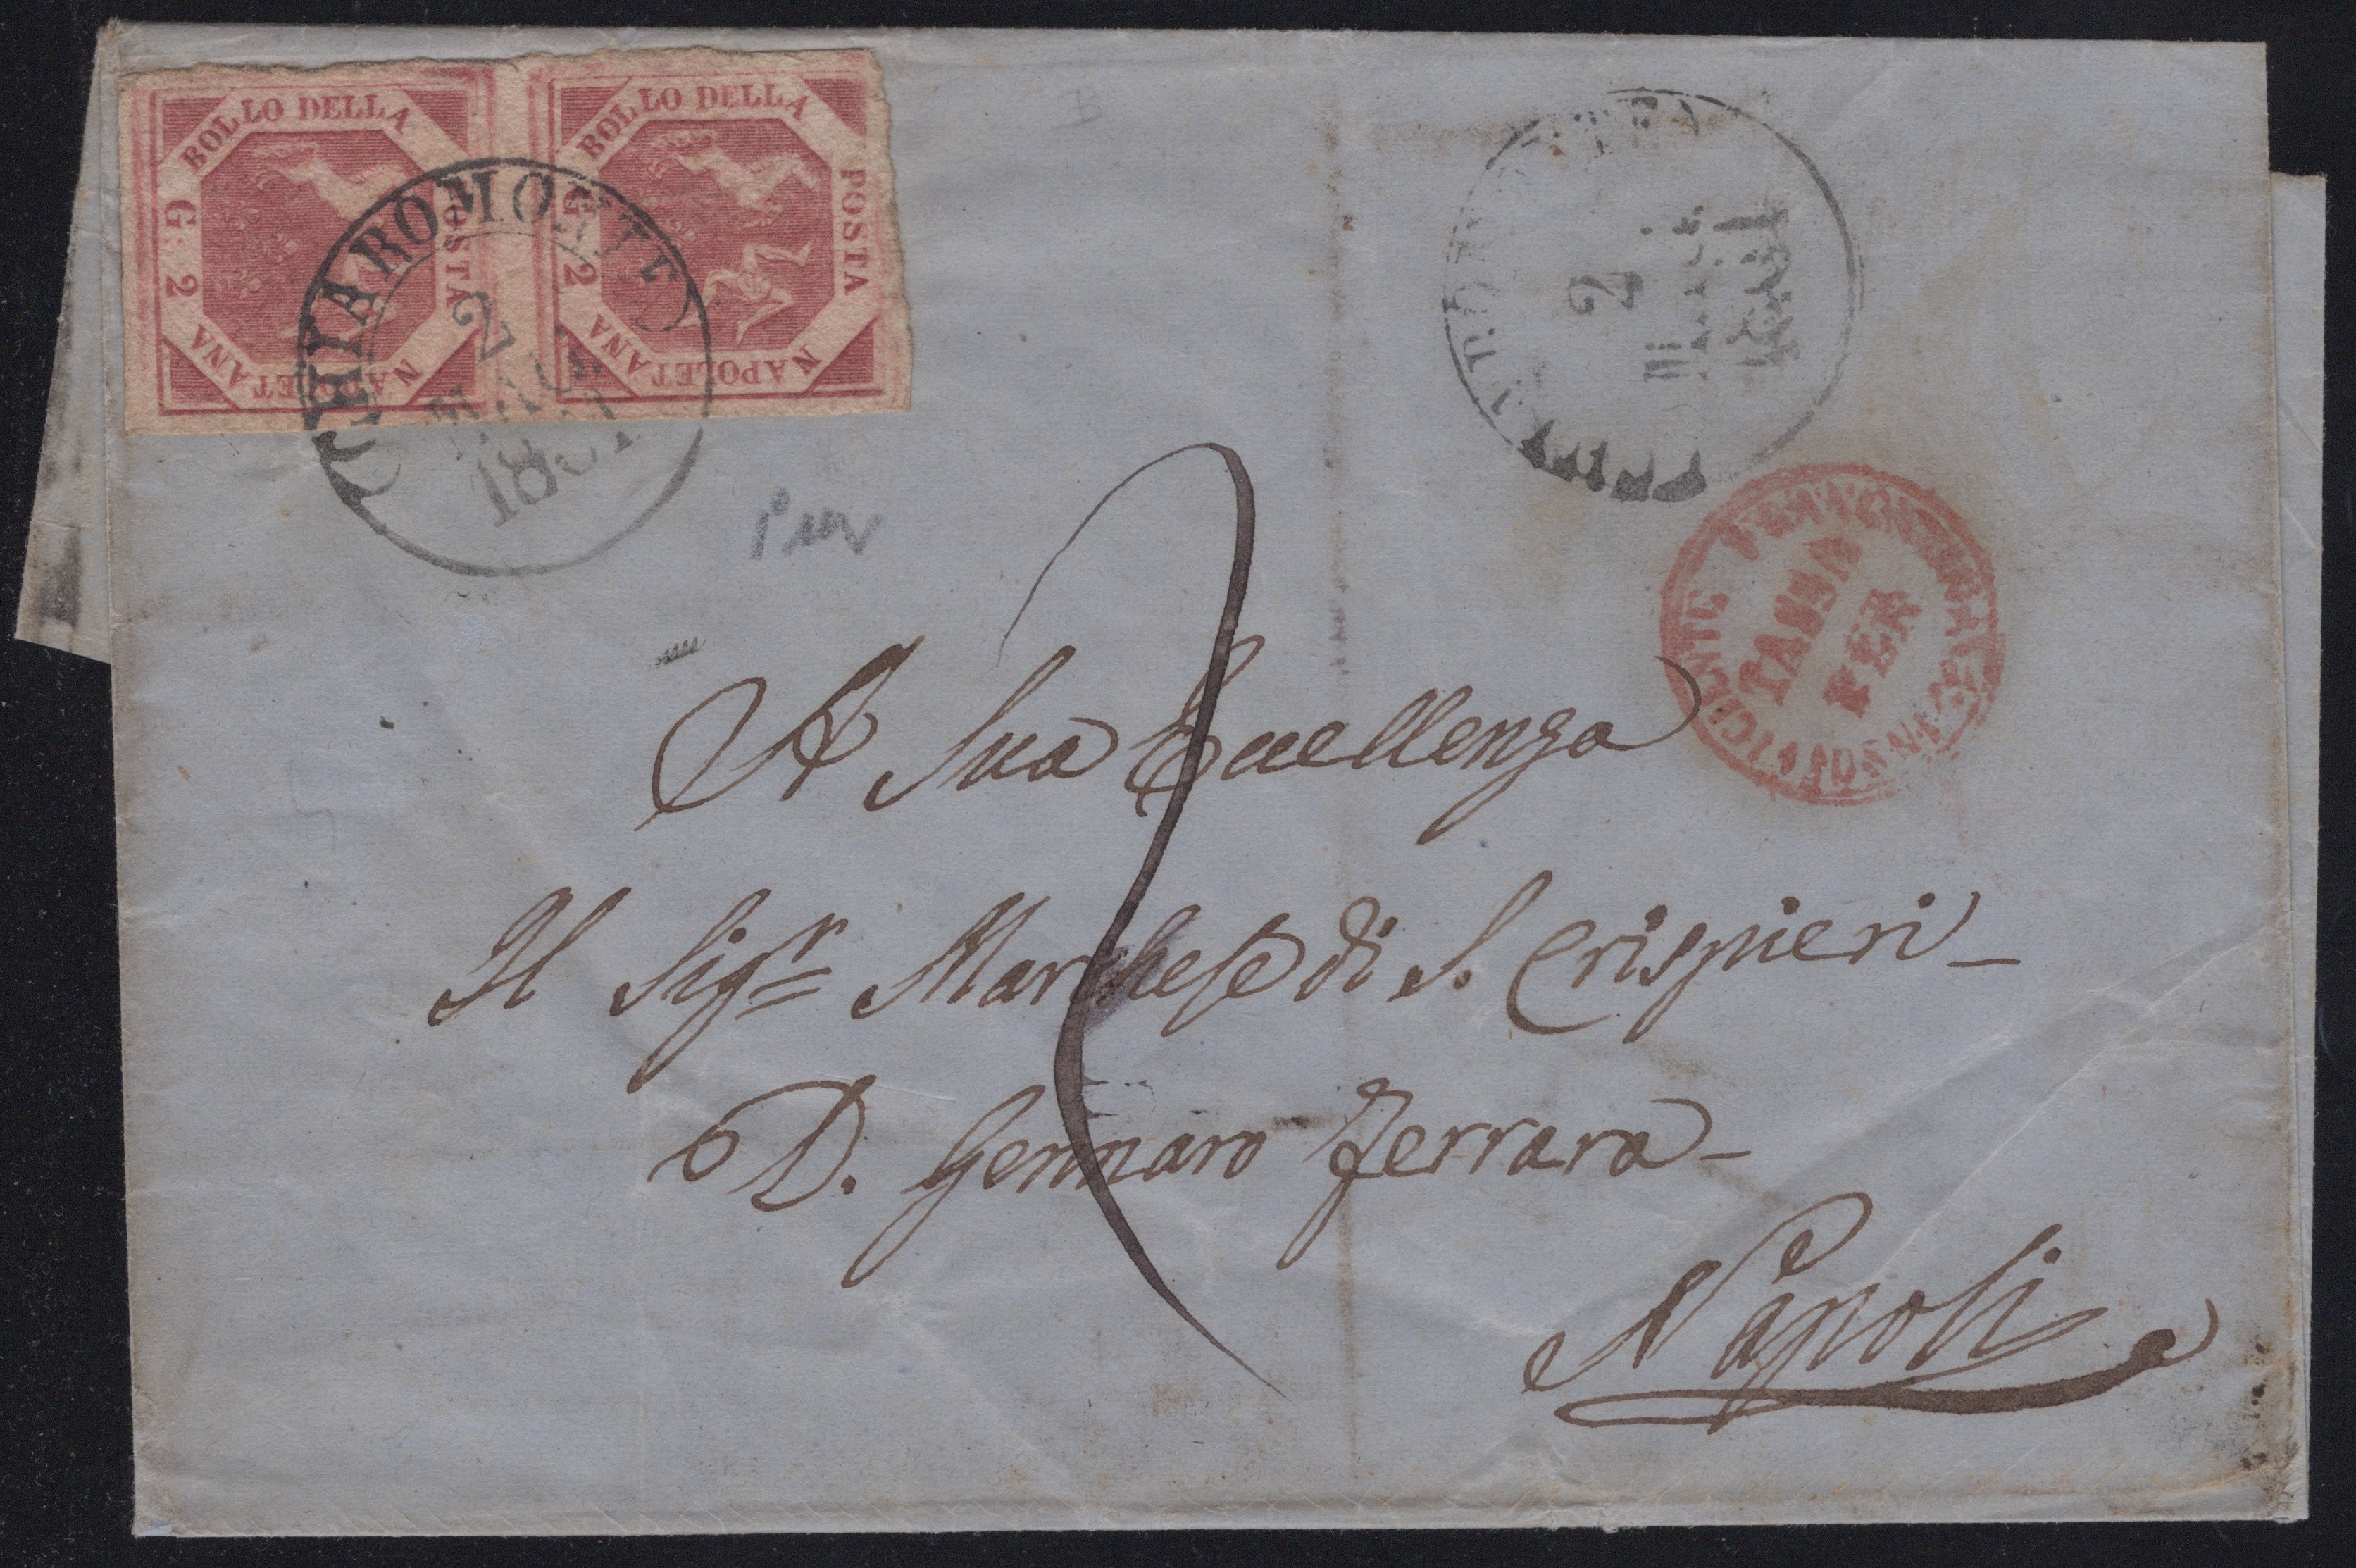 BOLLO DELLA POSTA NAPOLETANA G. 2
BOLLO DELLA POSTA NAPOLETANA G. 2
CHIAROMONTE
2
MAG
1861
2
INSUFFICIENTE
PER
A Sua Eccellenza
Il Sigr Marchese di S. Crispieri
D. Gennaro Ferrara
Napoli